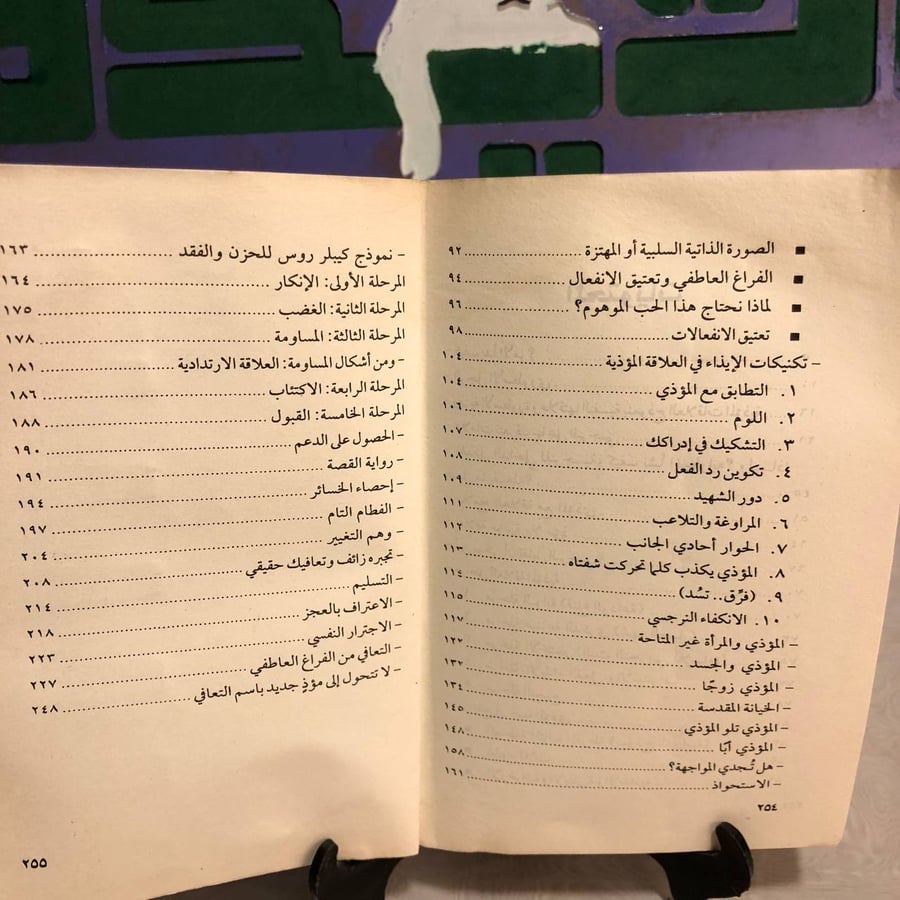 ■ الصورة الذاتية السلبية أو المهتزة ........ ٩٢
■ الفراغ العاطفي وتعتيق الانفعال ........ ٩٤
■ لماذا نحتاج هذا الحب الموهوم؟ ........ ٩٦
■ تعتيق الانفعالات ........ ٩٨
– تكنيكات الإيذاء في العلاقة المؤذية ........ ١٠٤
١. التطابق مع المؤذي ........ ١٠٤
٢. اللوم ........ ١٠٦
٣. التشكيك في إدراكك ........ ١٠٧
٤. تكوين رد الفعل ........ ١٠٨
٥. دور الشهيد ........ ١٠٩
٦. المراوغة والتلاعب ........ ١١١
٧. الحوار أحادي الجانب ........ ١١٢
٨. المؤذي يكذب كلما تحركت شفتاه ........ ١١٣
٩. (فرِّق.. تسُد) ........ ١١٤
١٠. الانكفاء النرجسي ........ ١١٥
– المؤذي والمرأة غير المتاحة ........ ١١٧
– المؤذي والجسد ........ ١٢٢
– المؤذي زوجًا ........ ١٣٢
– الخيانة المقدسة ........ ١٣٤
– المؤذي تلو المؤذي ........ ١٤٥
– المؤذي أبًا ........ ١٤٨
– هل تُجدي المواجهة؟ ........ ١٥٨
– الاستحواذ ........ ١٦١
٢٥٤
– نموذج كيبلر روس للحزن والفقد ........ ١٦٣
المرحلة الأولى: الإنكار ........ ١٦٤
المرحلة الثانية: الغضب ........ ١٧٥
المرحلة الثالثة: المساومة ........ ١٧٨
– ومن أشكال المساومة: العلاقة الارتدادية ........ ١٨١
المرحلة الرابعة: الاكتئاب ........ ١٨٦
المرحلة الخامسة: القبول ........ ١٨٨
– الحصول على الدعم ........ ١٩٠
– رواية القصة ........ ١٩١
– إحصاء الخسائر ........ ١٩٤
– الفطام التام ........ ١٩٧
– وهم التغيير ........ ٢٠٤
– تجبره زائف وتعافيك حقيقي ........ ٢٠٨
– التسليم ........ ٢١٤
– الاعتراف بالعجز ........ ٢١٨
– الاجترار النفسي ........ ٢٢٣
– التعافي من الفراغ العاطفي ........ ٢٢٧
– لا تتحول إلى مؤذٍ جديد باسم التعافي ........ ٢٤٨
٢٥٥